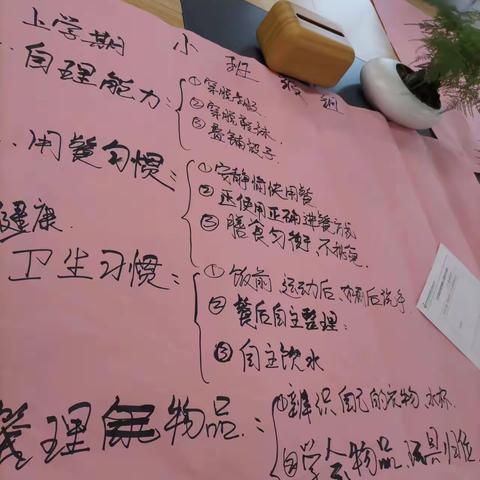 上学期 小班
自理能力:
①穿脱衣服
②穿脱鞋袜
③叠铺被子.
用餐习惯:
①安静愉快用餐
②还使用正确进餐方式
③膳食匀衡,不挑食.
健康.
卫生习惯:
①饭前 运动后、如厕后洗手
②餐后自主整理;
③自主饮水
管理 物品:
①辨识自己的衣物 水杯.
②学会物品,玩具归位